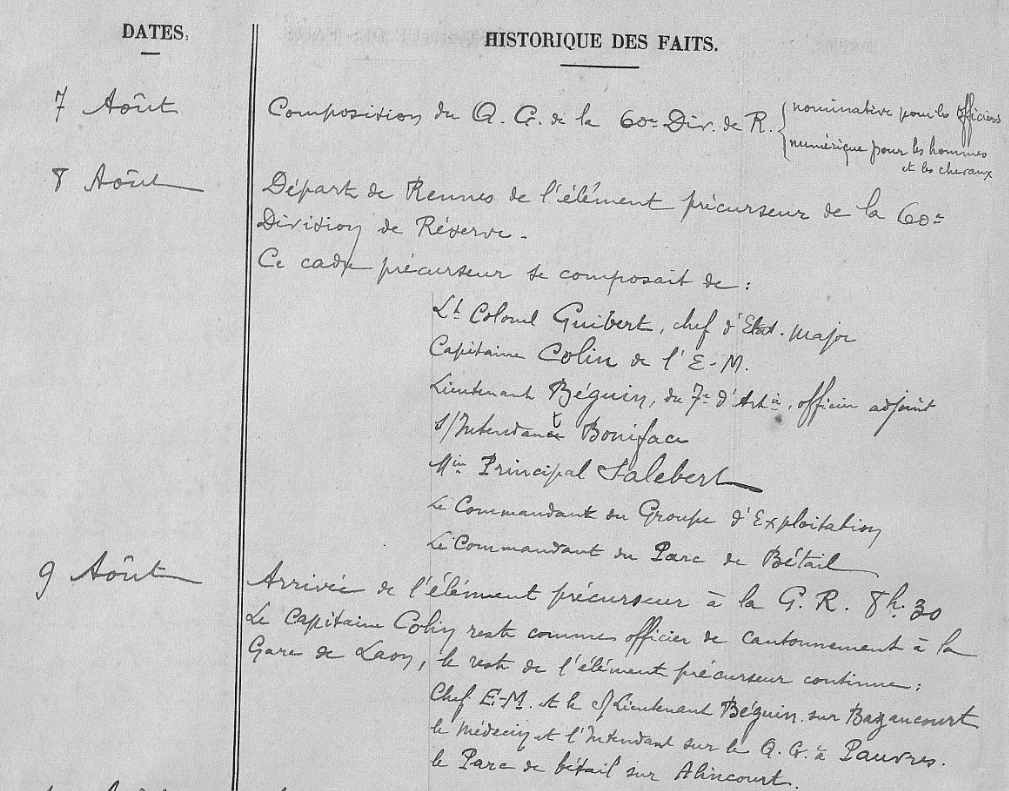 DATES.
HISTORIQUE DES FAITS.
7 Août
Composition du Q. G. de la 60e Div. de R. { nominative pour les officiers
numérique pour les hommes
et les chevaux
8 Août
Départ de Rennes de l'élément précurseur de la 60e
Division de Réserve.
Ce cadre précurseur se composait de :
Lt Colonel Guibert, chef d'Etat-major
Capitaine Colin de l'E-M.
Lieutenant Béguin, du 7e d'Artie, officier adjoint
S/Intendant Boniface
Min Principal Salebert
Le Commandant du Groupe d'Exploitation
Le Commandant du Parc de Bétail
9 Août
Arrivée de l'élément précurseur à la G. R. 8h.30
Le Capitaine Colin reste comme officier de cantonnement à la
Gare de Laon, le reste de l'élément précurseur continue :
Chef E-M. et le S/Lieutenant Béguin sur Bazancourt
le Médecin et l'Intendant sur le Q. G. à Pauvres.
le Parc de bétail sur Alincourt.